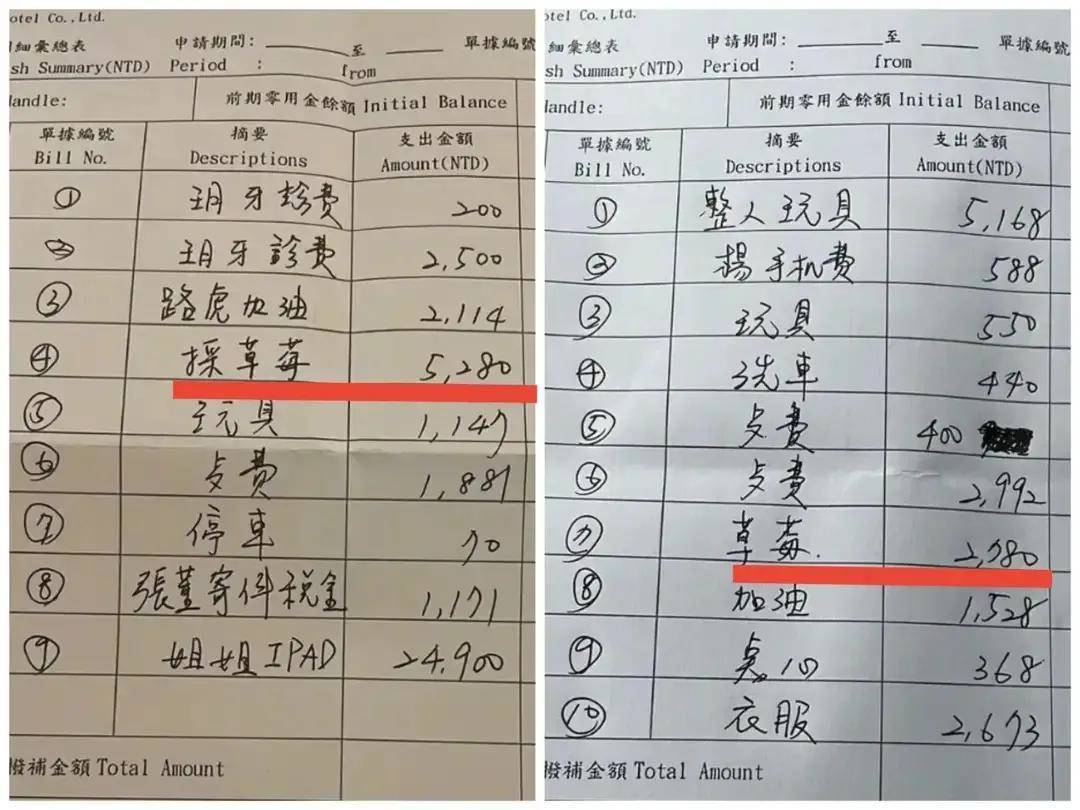 otel Co.,Ltd.
細彙總表 申請期間: 至 單據編號
sh Summary(NTD) Period : from
Handle: 前期零用金餘額 Initial Balance
單據編號 摘要 支出金額
Bill No. Descriptions Amount(NTD)
① 玥牙診費 200
② 玥牙診費 2,500
③ 路虎加油 2,114
④ 採草莓 5,280
⑤ 玩具 1,147
⑥ 点費 1,881
⑦ 停車 70
⑧ 張董寄件稅金 1,171
⑨ 姐姐IPAD 24,900
撥補金額 Total Amount
otel Co.,Ltd.
細彙總表 申請期間: 至 單據編號
sh Summary(NTD) Period : from
Handle: 前期零用金餘額 Initial Balance
單據編號 摘要 支出金額
Bill No. Descriptions Amount(NTD)
① 整人玩具 5,168
② 楊手机費 588
③ 玩具 550
④ 洗車 440
⑤ 点費 400
⑥ 点費 2,992
⑦ 草莓. 2,780
⑧ 加油 1,528
⑨ 点心 368
⑩ 衣服 2,673
撥補金額 Total Amount